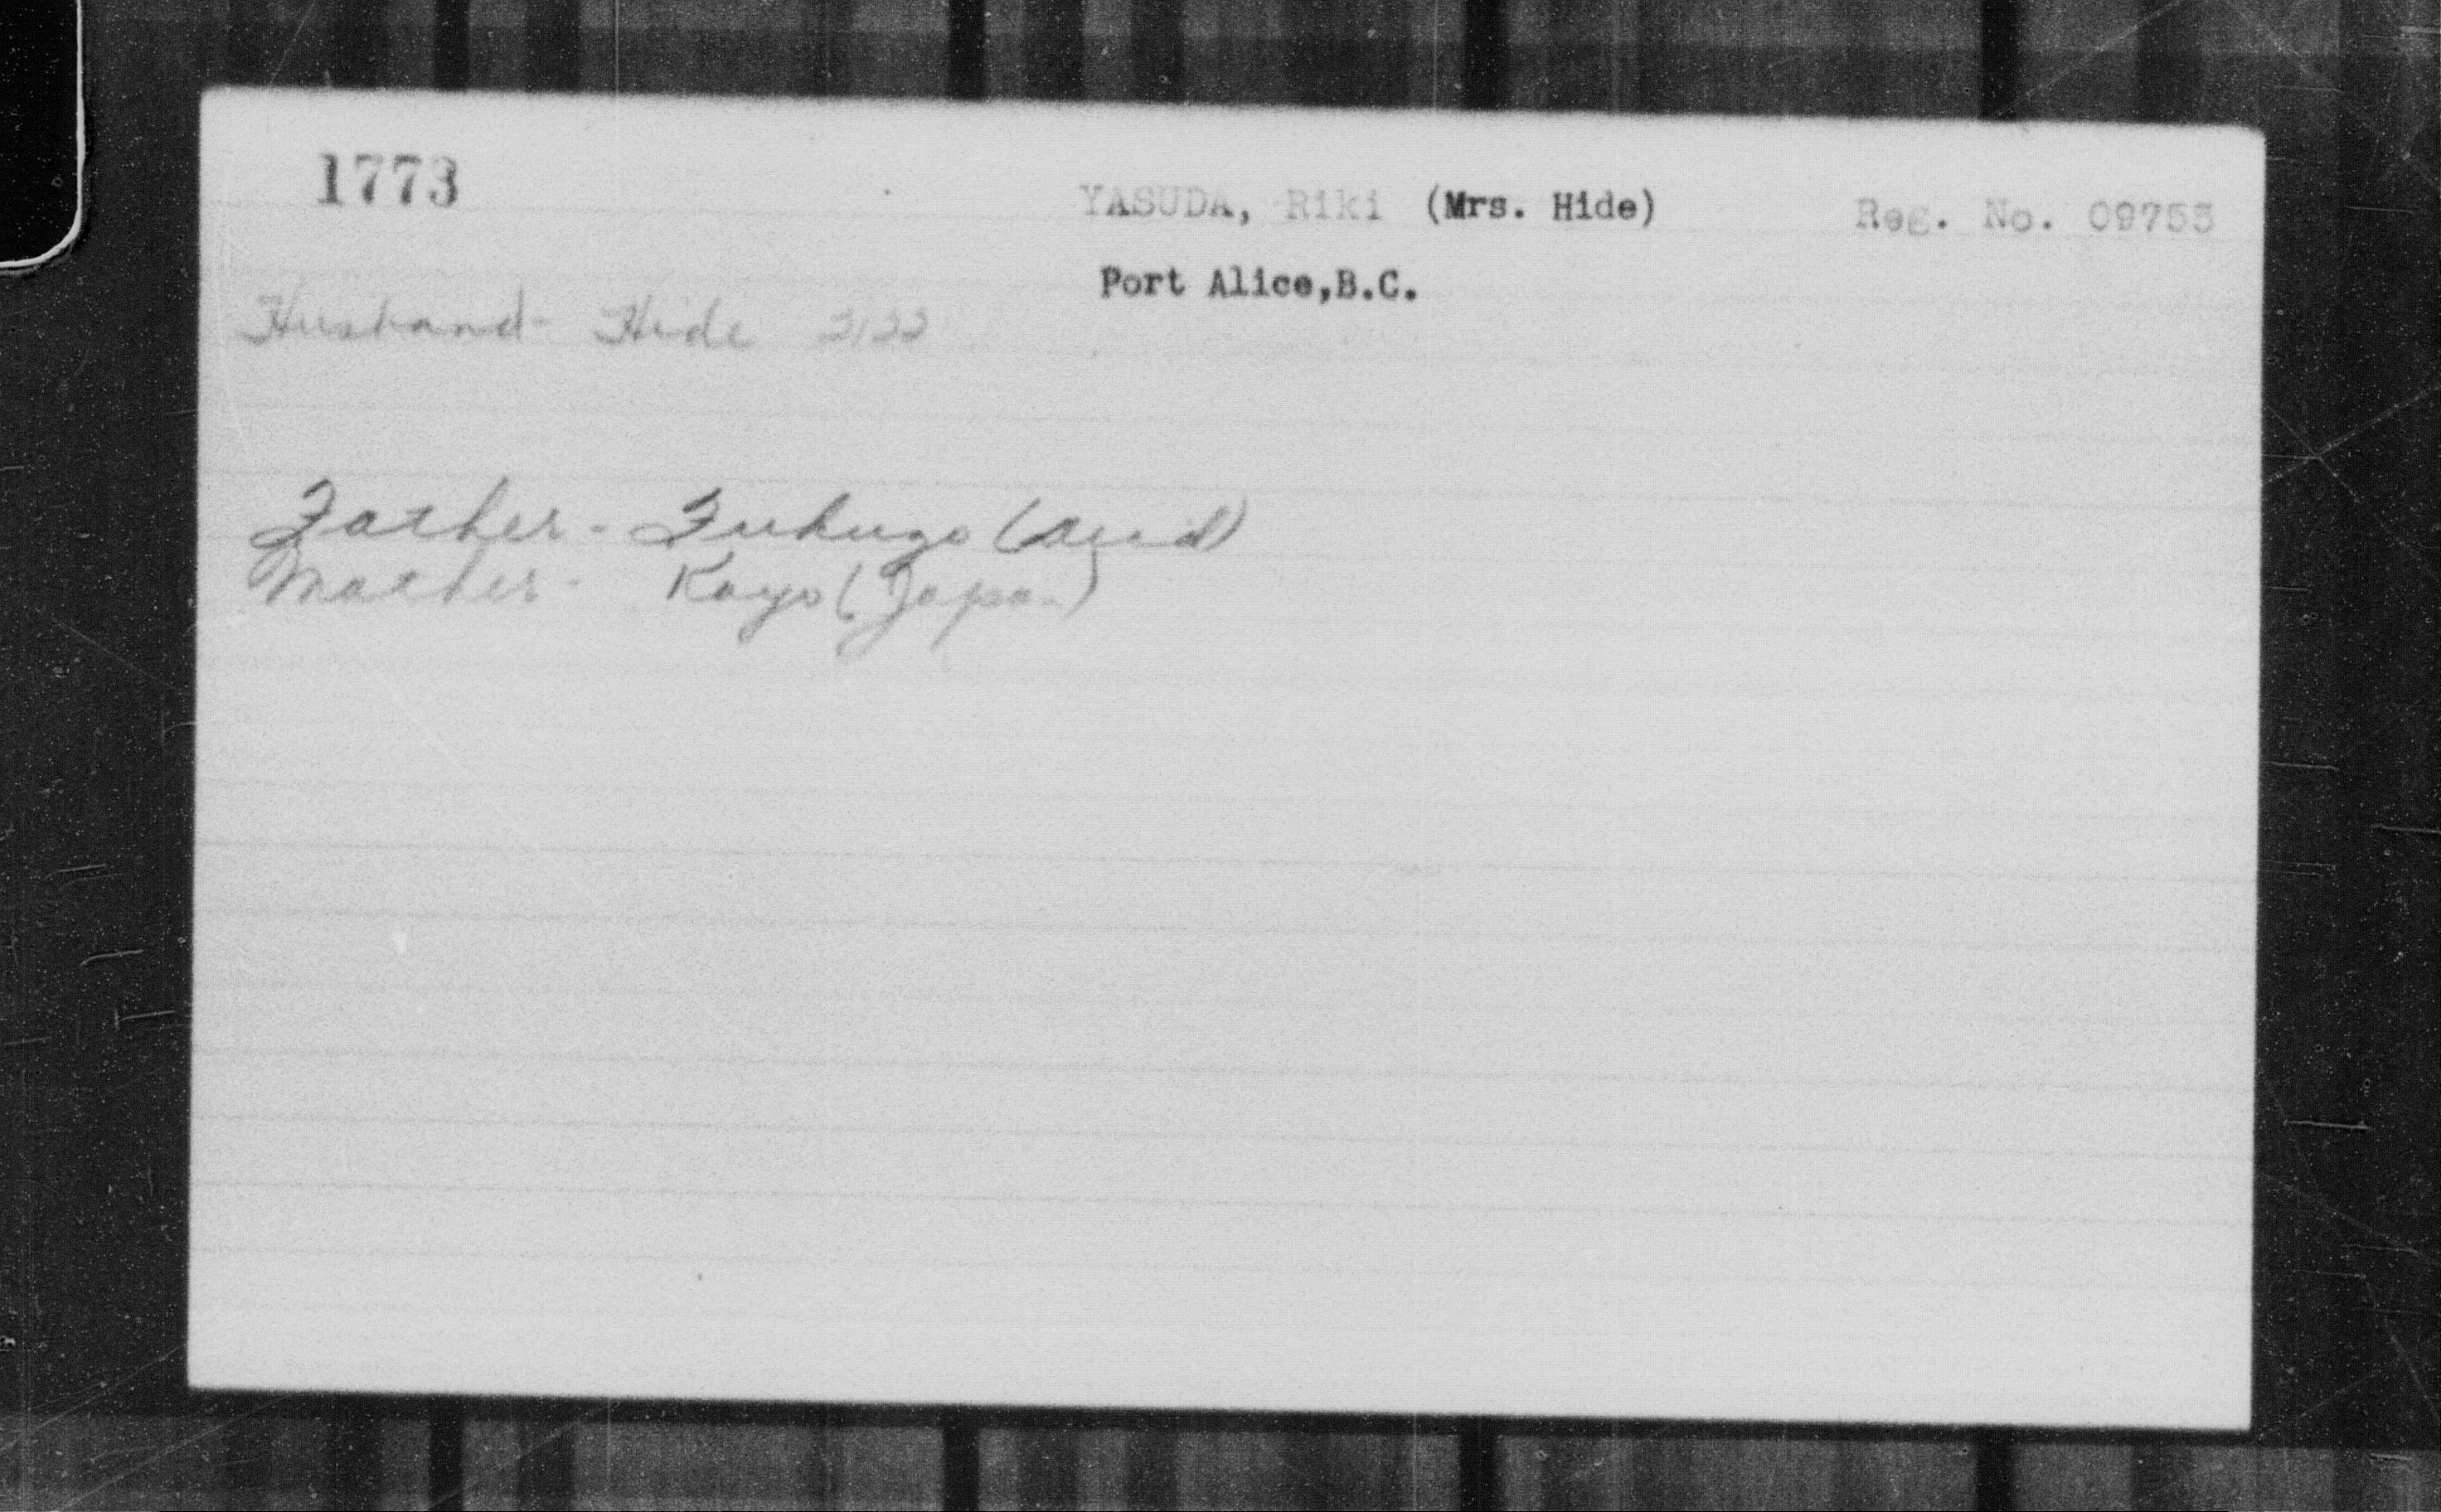 1773
YASUDA, Riki (Mrs. Hide)
Reg. No. 09755
Port Alice,B.C.
Husband - Hide
Father - Fukuzo
Mother - Kayo (Japan)